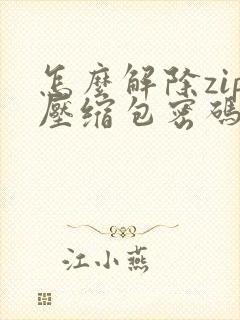 怎麼解除zip
壓缩包密碼
江小燕